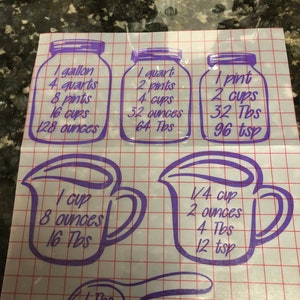 1 gallon
4 quarts
8 pints
16 cups
128 ounces
1 quart
2 pints
4 cups
32 ounces
64 Tbs
1 pint
2 cups
32 Tbs
96 tsp
1 cup
8 ounces
16 Tbs
1/4 cup
2 ounces
4 Tbs
12 tsp
1 Tbs